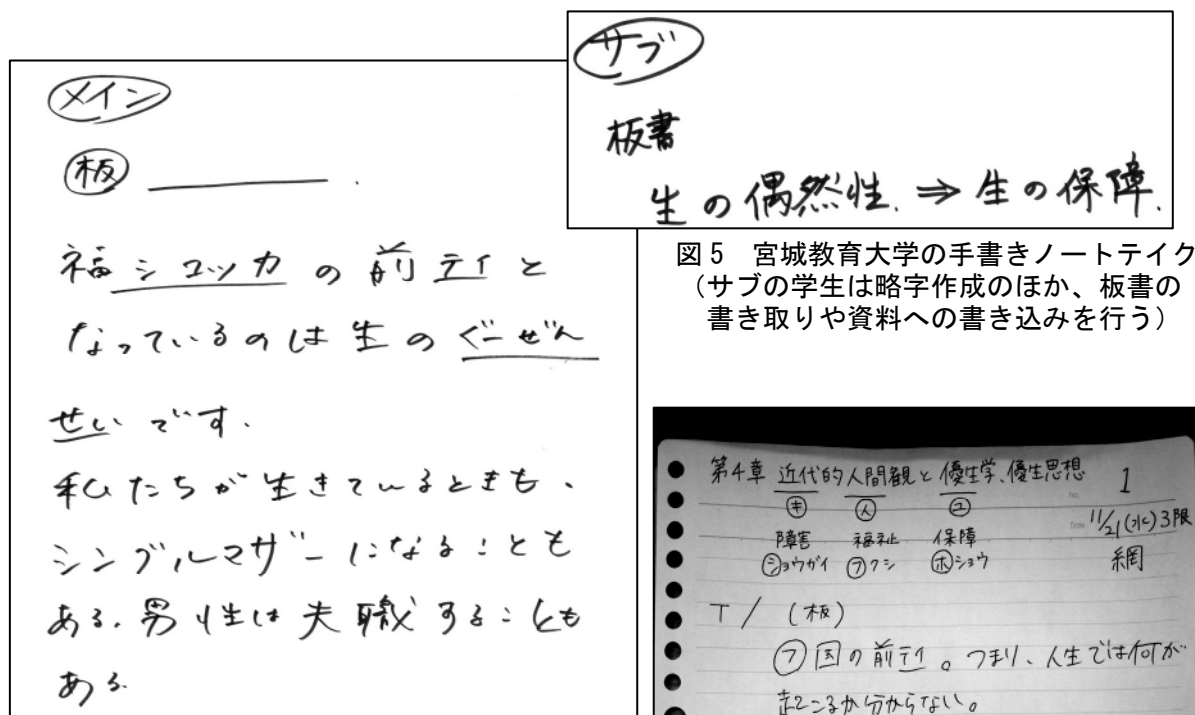 メイン
板 ＿＿＿＿.
福シユッカの前テイと
なっているのは生のぐーぜん
せいです.
私たちが生きているときも、
シングルマザーになることも
ある.男性は失職することも
ある.
サブ
板書
生の偶然性.⇒生の保障.
図5 宮城教育大学の手書きノートテイク
（サブの学生は略字作成のほか、板書の
書き取りや資料への書き込みを行う）
第4章 近代的人間観と優生学、優生思想 1
キ 人 ユ
No.
Date 11/21(水)3限
障害 福祉 保障 網
ショウガイ フクシ ホショウ
T/ (板)
フ国の前テイ。つまり、人生では何が
起こるか分からない。